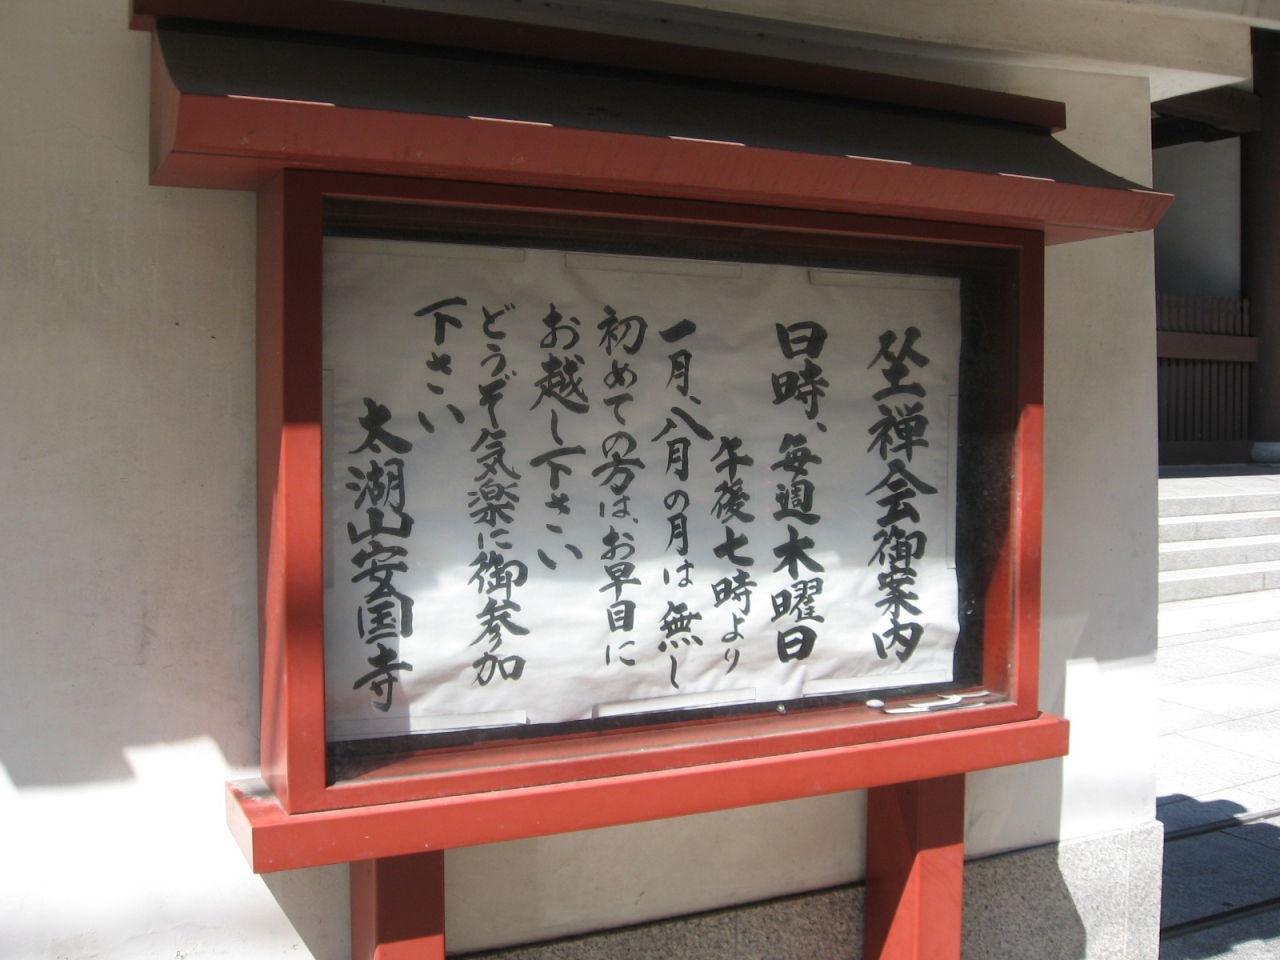 坐禅会御案内
日時、毎週木曜日
午後七時より
一月、八月の月は無し
初めての方は、お早目に
お越し下さい
どうぞ気楽に御参加
下さい
太湖山安国寺